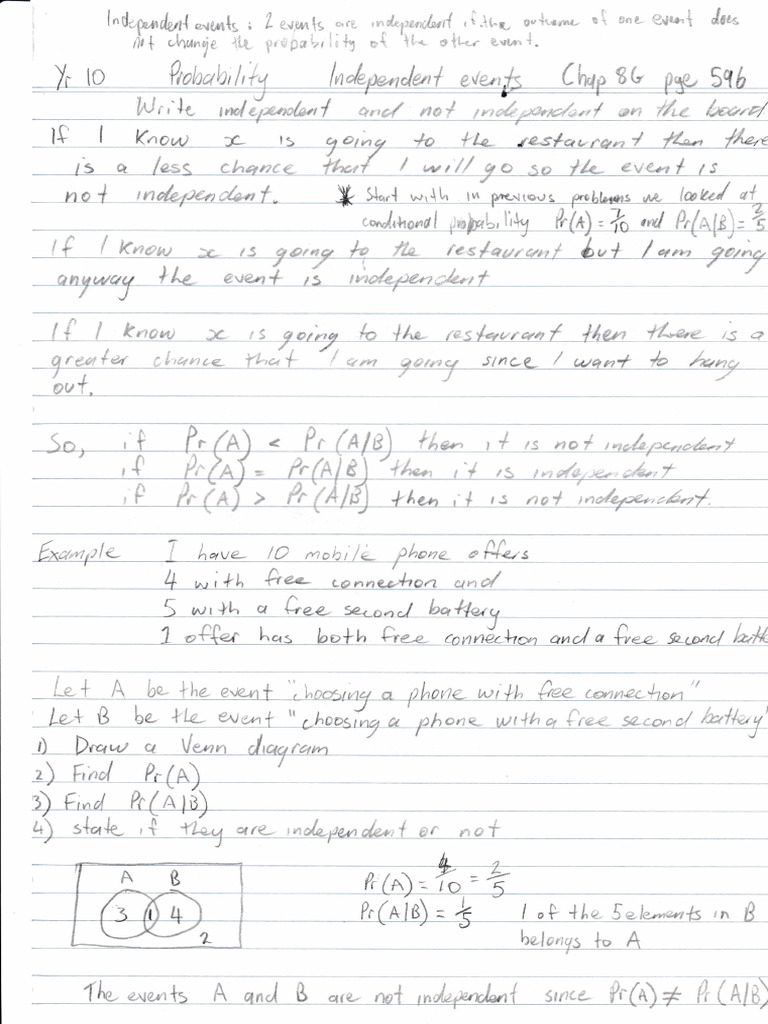 Independent events: 2 events are independent if the outcome of one event does
not change the probability of the other event.
Yr 10 Probability Independent events Chap 8G pge 596
Write independent and not independent on the board
If I know x is going to the restaurant then there
is a less chance that I will go so the event is
not independent. * Start with in previous problems we looked at
conditional probability Pr(A) = 7/10 and Pr(A|B) = 2/5
If I know x is going to the restaurant but I am going
anyway the event is independent
If I know x is going to the restaurant then there is a
greater chance that I am going since I want to hang
out.
So, if Pr(A) < Pr(A|B) then it is not independent
if Pr(A) = Pr(A|B) then it is independent
if Pr(A) > Pr(A|B) then it is not independent.
Example I have 10 mobile phone offers
4 with free connection and
5 with a free second battery
1 offer has both free connection and a free second batte
Let A be the event "choosing a phone with free connection"
Let B be the event "choosing a phone with a free second battery"
1) Draw a Venn diagram
2) Find Pr(A)
3) Find Pr(A|B)
4) state if they are independent or not
A B
3 1 4
2
Pr(A) = 4/10 = 2/5
Pr(A|B) = 1/5 1 of the 5 elements in B
belongs to A
The events A and B are not independent since Pr(A) ≠ Pr(A|B)